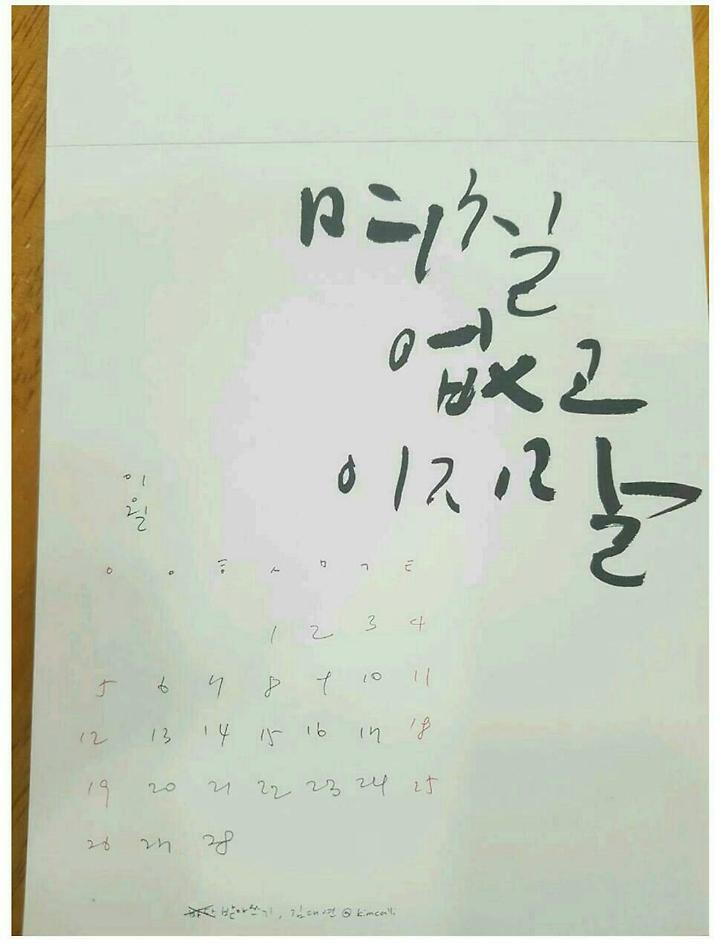 며칠
없고
이지랄
이
월
ㅇ ㅇ ㅎ ㅅ ㅁ ㄱ ㅌ
1 2 3 4
5 6 7 8 9 10 11
12 13 14 15 16 17 18
19 20 21 22 23 24 25
26 27 28
받아쓰기, 김대연 @kimcalli